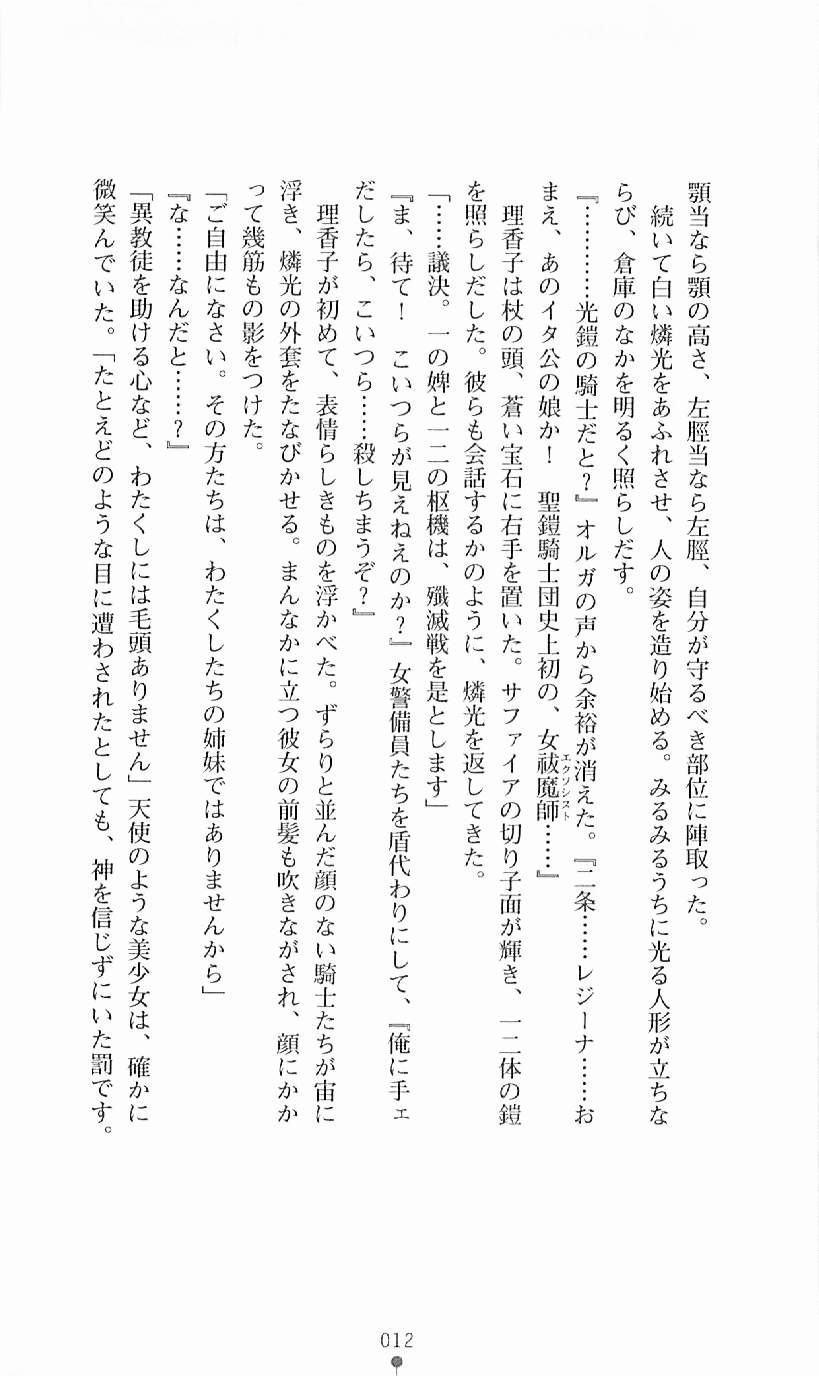 顎当なら顎の高さ、左脛当なら左脛、自分が守るべき部位に陣取った。
　続いて白い燐光をあふれさせ、人の姿を造り始める。みるみるうちに光る人形が立ちな
らび、倉庫のなかを明るく照らしだす。
『…………光鎧の騎士だと？』オルガの声から余裕が消えた。『二条……レジーナ……お
まえ、あのイタ公の娘か！　聖鎧騎士団史上初の、女祓魔師……』
エクソシスト
　理香子は杖の頭、蒼い宝石に右手を置いた。サファイアの切り子面が輝き、一二体の鎧
を照らしだした。彼らも会話するかのように、燐光を返してきた。
「……議決。一の婢と一二の枢機は、殲滅戦を是とします」
『ま、待て！　こいつらが見えねえのか？』女警備員たちを盾代わりにして、『俺に手ェ
だしたら、こいつら……殺しちまうぞ？』
　理香子が初めて、表情らしきものを浮かべた。ずらりと並んだ顔のない騎士たちが宙に
浮き、燐光の外套をたなびかせる。まんなかに立つ彼女の前髪も吹きながされ、顔にかか
って幾筋もの影をつけた。
「ご自由になさい。その方たちは、わたくしたちの姉妹ではありませんから」
『な……なんだと……？』
「異教徒を助ける心など、わたくしには毛頭ありません」天使のような美少女は、確かに
微笑んでいた。「たとえどのような目に遭わされたとしても、神を信じずにいた罰です。
012